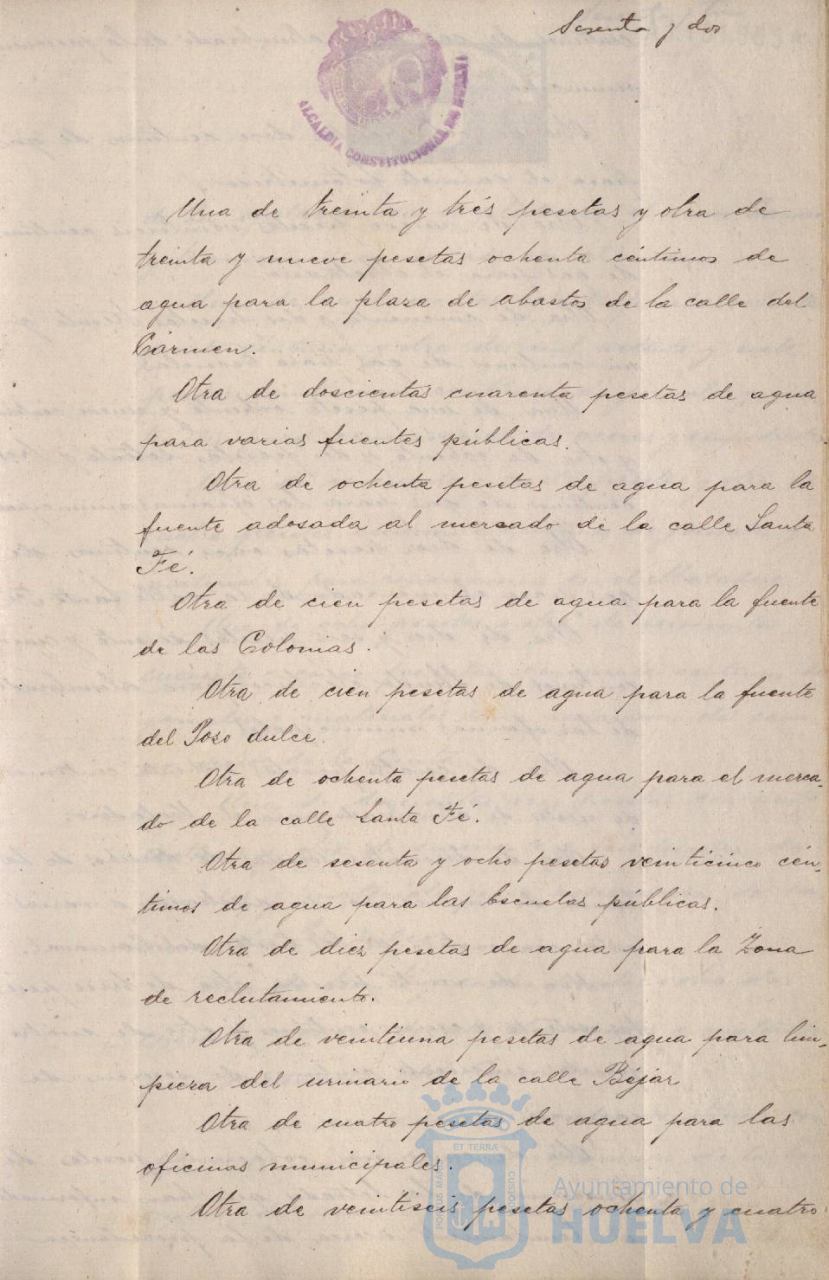 Sesenta y dos
ALCALDIA CONSTITUCIONAL DE HUELVA
Una de treinta y trés pesetas y otra de
treinta y nueve pesetas ochenta céntimos de
agua para la plaza de abastos de la calle del
Cármen.
Otra de doscientas cuarenta pesetas de agua
para varias fuentes públicas.
Otra de ochenta pesetas de agua para la
fuente adosada al mercado de la calle Santa
Fé.
Otra de cien pesetas de agua para la fuente
de las Colonias.
Otra de cien pesetas de agua para la fuente
del Poso dulce.
Otra de ochenta pesetas de agua para el merca-
do de la calle Santa Fé.
Otra de sesenta y ocho pesetas veinticinco cén-
timos de agua para las Escuelas públicas.
Otra de diez pesetas de agua para la Zona
de reclutamiento.
Otra de veintiuna pesetas de agua para lim-
pieza del urinario de la calle Béjar
Otra de cuatro pesetas de agua para las
oficinas municipales.
Otra de veintiseis pesetas ochenta y cuatro
PORTUS MARIS ET TERRÆ CUSTODIA
Ayuntamiento de
HUELVA